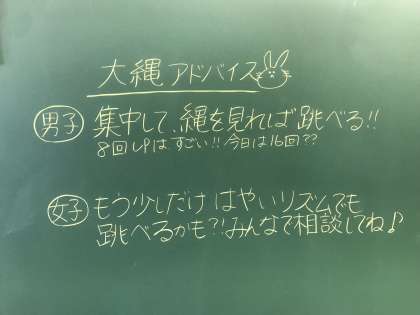 大縄 アドバイス
男子 集中して、縄を見れば跳べる!!
8回UPは すごい!! 今日は16回??
女子 もう少しだけ はやいリズムでも
跳べるかも?!みんなで相談してね♪